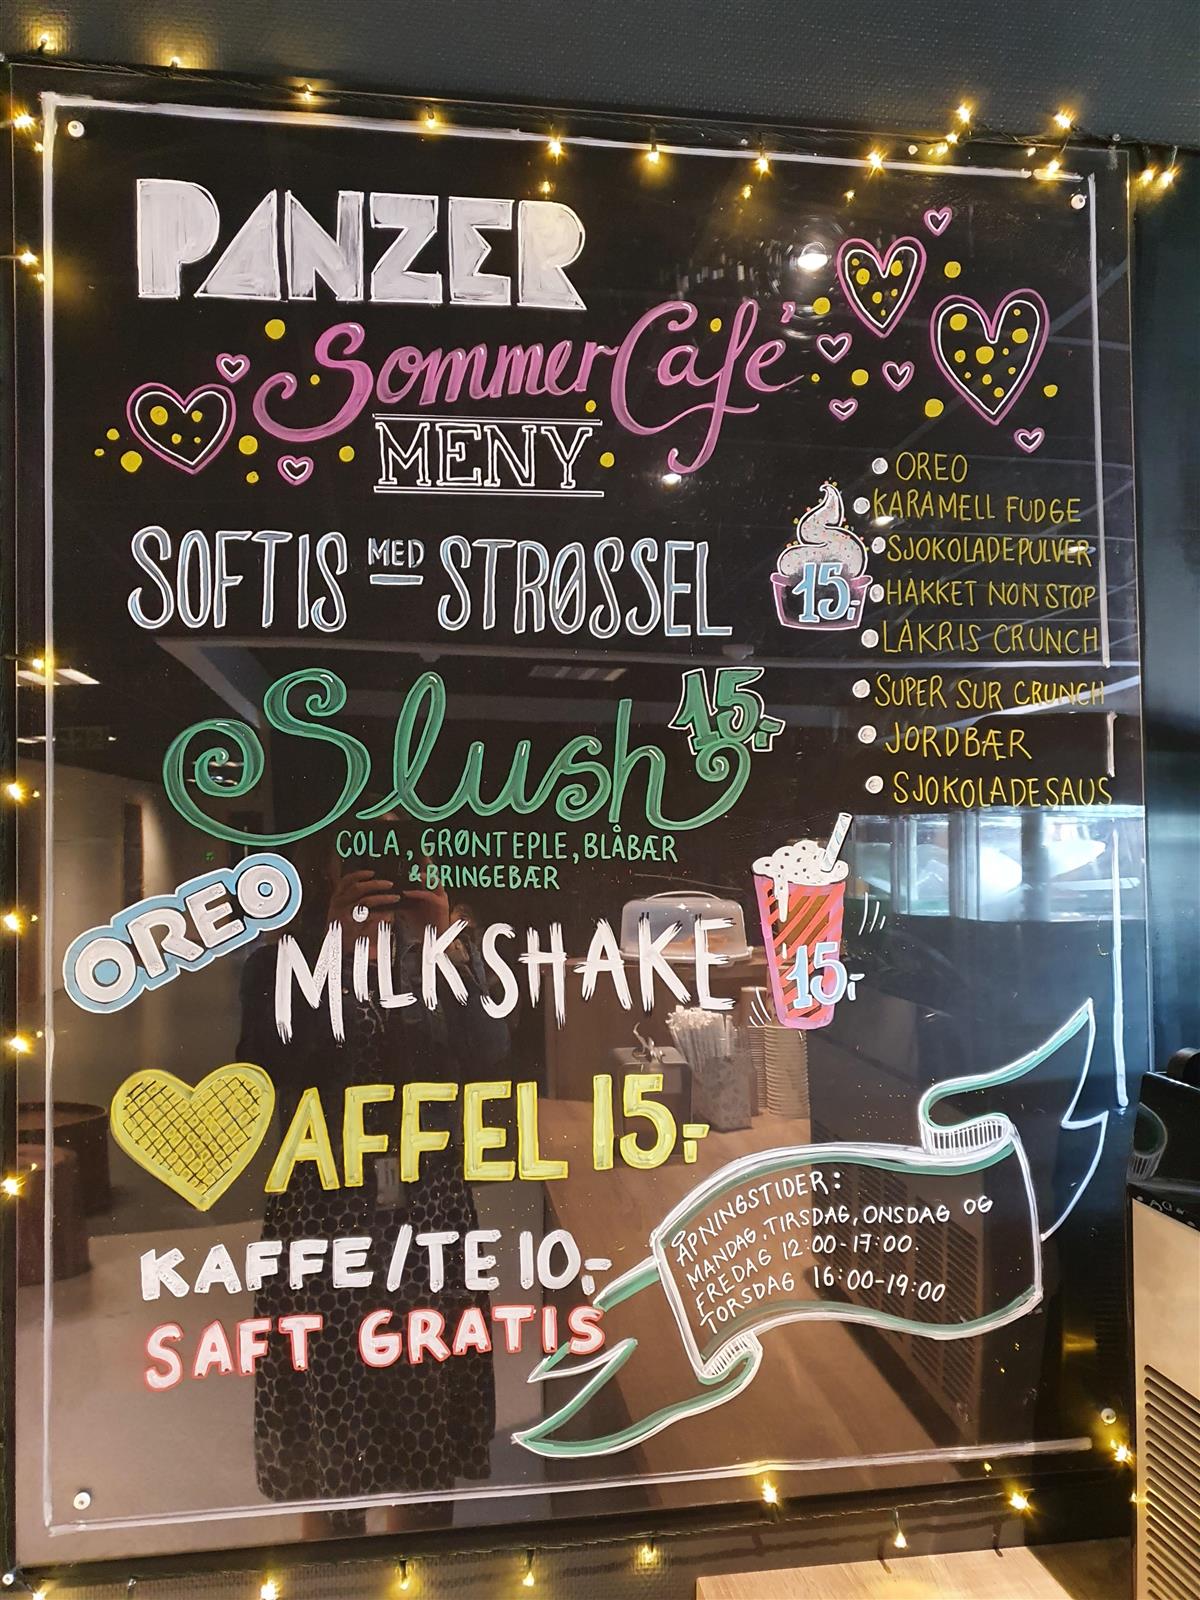 PANZER
SommerCafé
MENY
SOFTIS MED STRØSSEL
15,-
OREO
KARAMELL FUDGE
SJOKOLADEPULVER
HAKKET NON STOP
LAKRIS CRUNCH
SUPER SUR CRUNCH
JORDBÆR
SJOKOLADESAUS
Slush 15,-
COLA, GRØNT EPLE, BLÅBÆR
& BRINGEBÆR
OREO MILKSHAKE 15,-
AFFEL 15,-
KAFFE/TE 10,-
SAFT GRATIS
ÅPNINGSTIDER:
MANDAG, TIRSDAG, ONSDAG OG
FREDAG 12:00-17:00.
TORSDAG 16:00-19:00